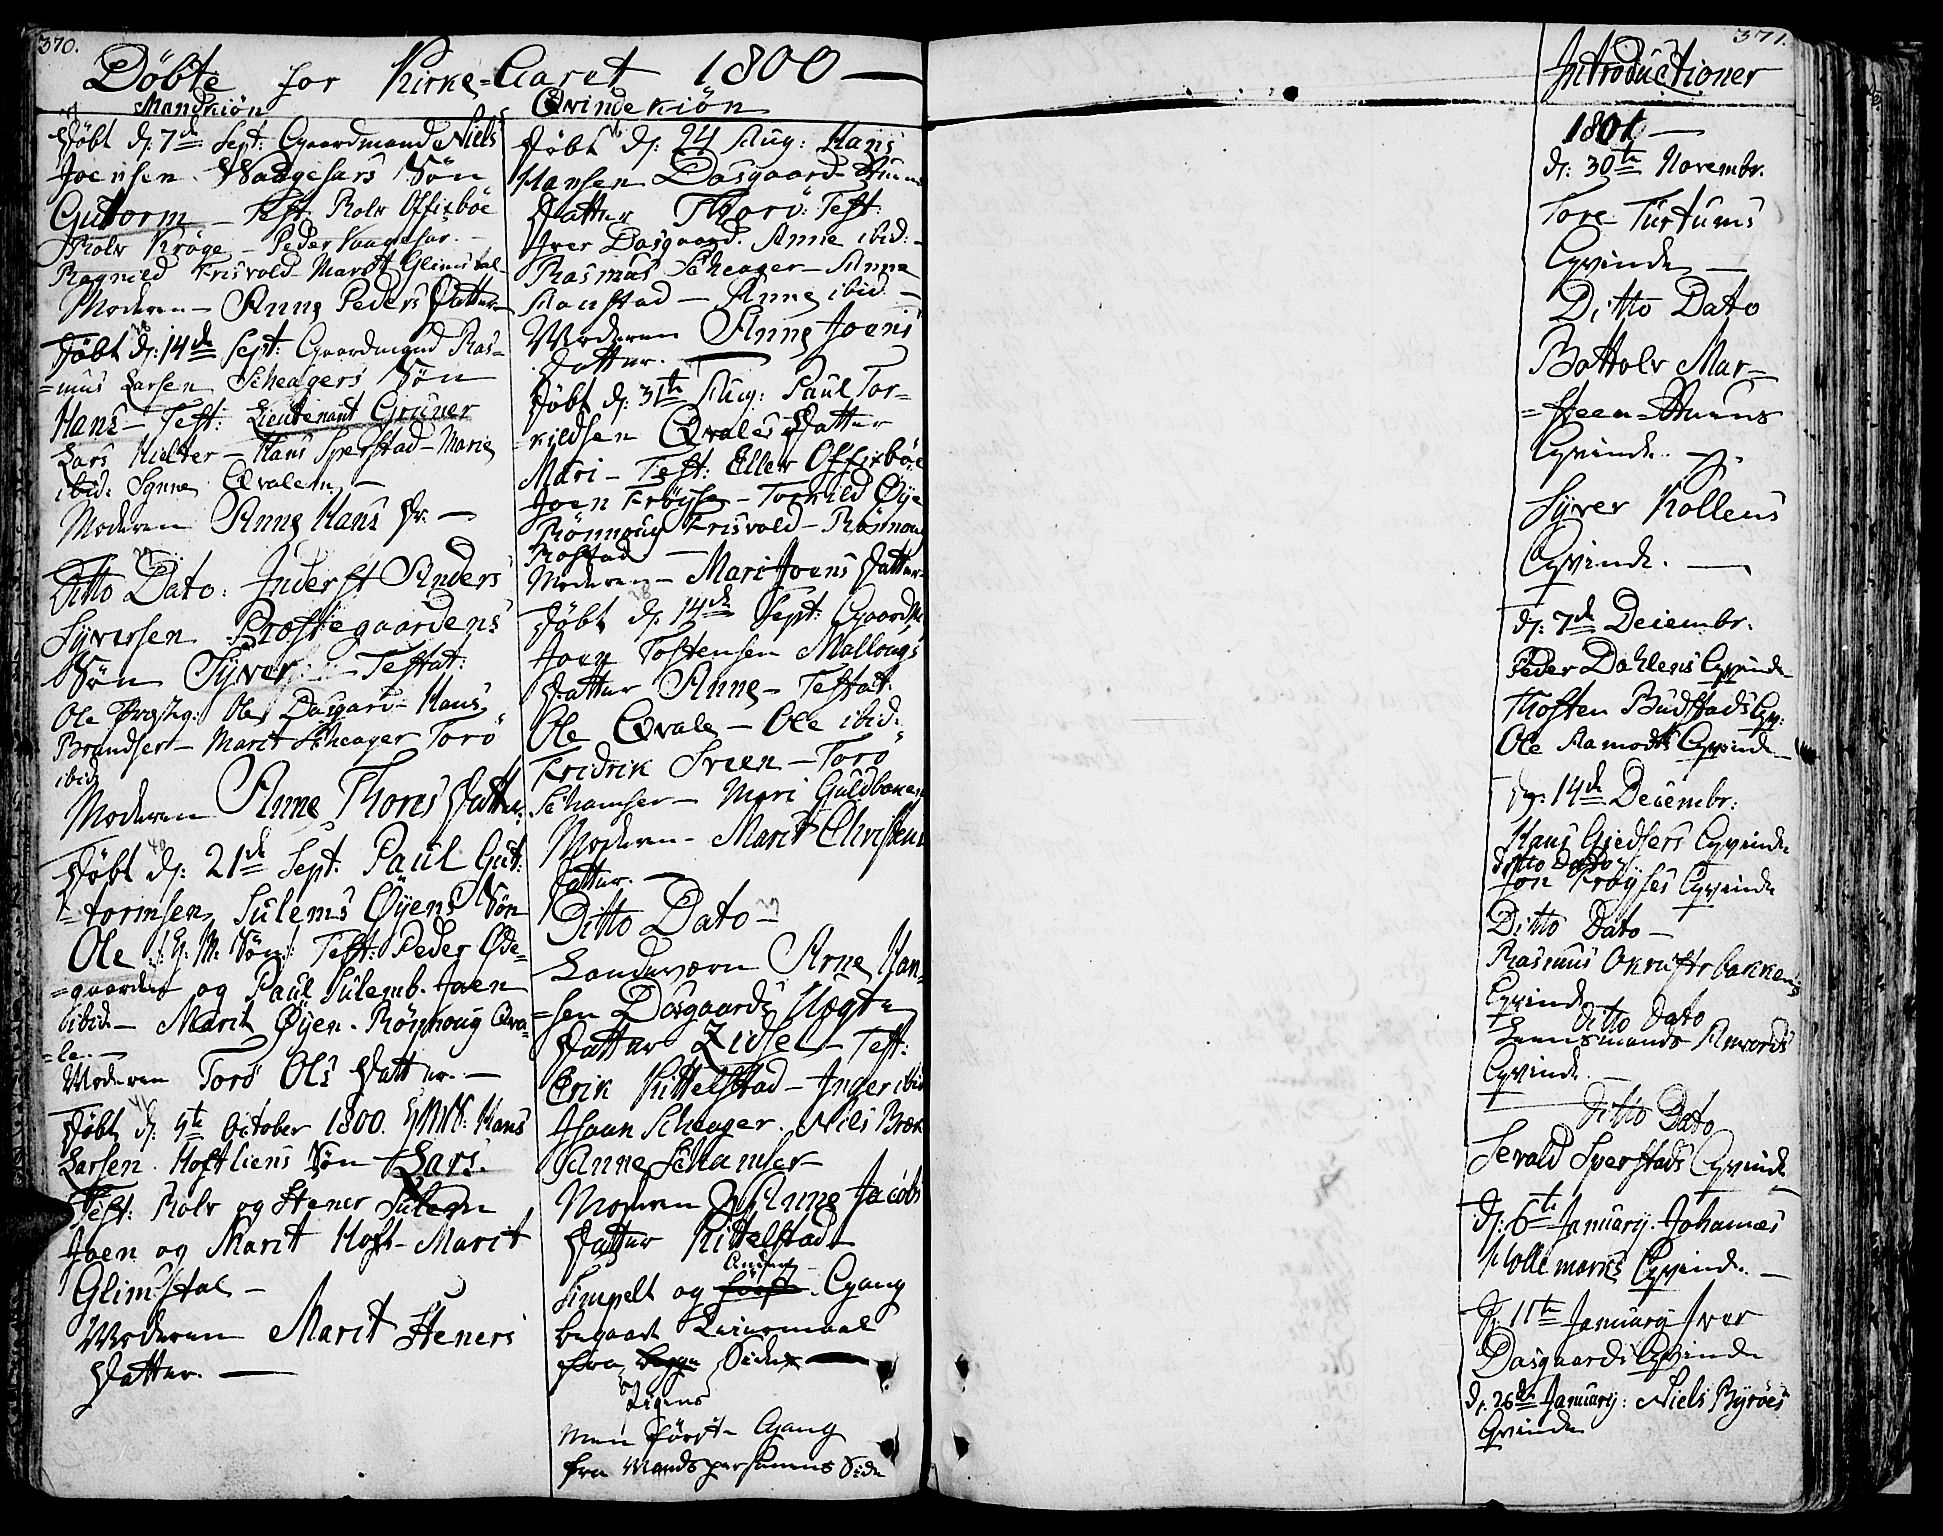 370.
Döbte for Kirke-Aaret 1800 —
Mandkiön
Döbt d: 7de Sept: Gaardmand Niels
Joensen Waagesars Sön
Gutorm — Test. Rolv Offisböe
Rolv Kröge — Peder Vaagesar. —
Ragnild Frisvold — Marit Glimsdal
Moderen — Anne Peders Datter
Döbt d: 14de Sept: Gaardmand Ras-
=mus Larsen Scheagers Sön
Hans — Test: Lieutenant Gruner
Lars Hielter — Hans Sperstad — Marie
ibid: Synne Qvalem —
Moderen Anne Hans Dr. —
Ditto Dato: Inderst Anders
Syversen Prostegaardens
Sön Syver — Testat:
Ole Prosteg: Ole Dasgard — Hans
Brandser — Marit Scheager Torö
ibid
Moderen Anne Thores Datter
40
Döbt d: 21de Sept. Paul Gut:
=tormsen Sulems Øyens Sön
Ole Sön: Test: Peder Øde-
=gaarden og Paul Sulemb. Joen
ibid — Marit Øyen. Rönnoug Qva-
=le. —
Moderen Torö Ols Datter. —
41
Döbt d: 5te October 1800. Hans
Larsen Hoftliens Sön Lars.
Test: Rolv og Stener Sulem
Joen og Marit Hoft — Marit
Glimsdal —
Moderen Marit Steners
Datter. —
Qvindekiön
Döbt d: 24 Aug: Hans
Hansen Dasgaard
Datter Thorö: Test:
Iver Dasgaard. Anne ibid: —
Rasmus Scheager — Anne
Kanstad — Anne ibid —
Moderen Anne Joens
Datter. —
Döbt d: 31te Aug: Paul Tor-
=kildsen Qvales Datter
Mari — Test: Eller Offisböe
Joen Fröyse — Torkild Øye
Rönnoug Frisvold — Rönnoug
Rostad —
Moderen — Mari Joens Datter
28
Döbt d: 14de Sept: Gaardm
Joen Tostensen Mallongs
Datter Anne — Testat:
Ole Qvale — Ole ibid:
Fridrik Sveen — Torö
Schamser — Mari Guldbaken
Moderen — Marit Christens
Datter. —
Ditto Dato —
Landeværn Arne Han-
=sen Dasgaards Uægte
Datter Zidsel — Test:
Erik Kittelstad — Inger ibid
Johan Scheager. Niels Bræk
Anne Schamser —
Moderen Anne Jacobs
Datter Kittelstad
Anden
Simpelt og förste Gang
begaaet Leiermaal
fra begge Sider —
Pigens
men förste Gang
fra Mandspersonens Side
371.
Introductioner
1801 —
d: 30te Novembr.
Tore Turtums
Qvinde —
Ditto Dato
Bottolv Mar-
=steen
Qvinde.
Syver Kollens
Qvinde. —
d: 7de Decembr:
Peder Dahlens Qvinde
Thosten Budstads Qv:
Ole Aamodts Qvinde —
d: 14de Decembr:
Hans Giedsers Qvinde
ditto dato
Jon Fröyses Qvinde
Ditto Dato —
Rasmus Okrustbakkens
Qvinde
Ditto Dato
Lensmands Aaords
Qvinde —
Ditto Dato
Sevald Sperstads Qvinde
d: 6te January. Johannes
Mollemarks Qvinde. —
d: 11te January Iver
Dasgaards Qvinde
d: 26de January: Niels Byröes
Qvinde